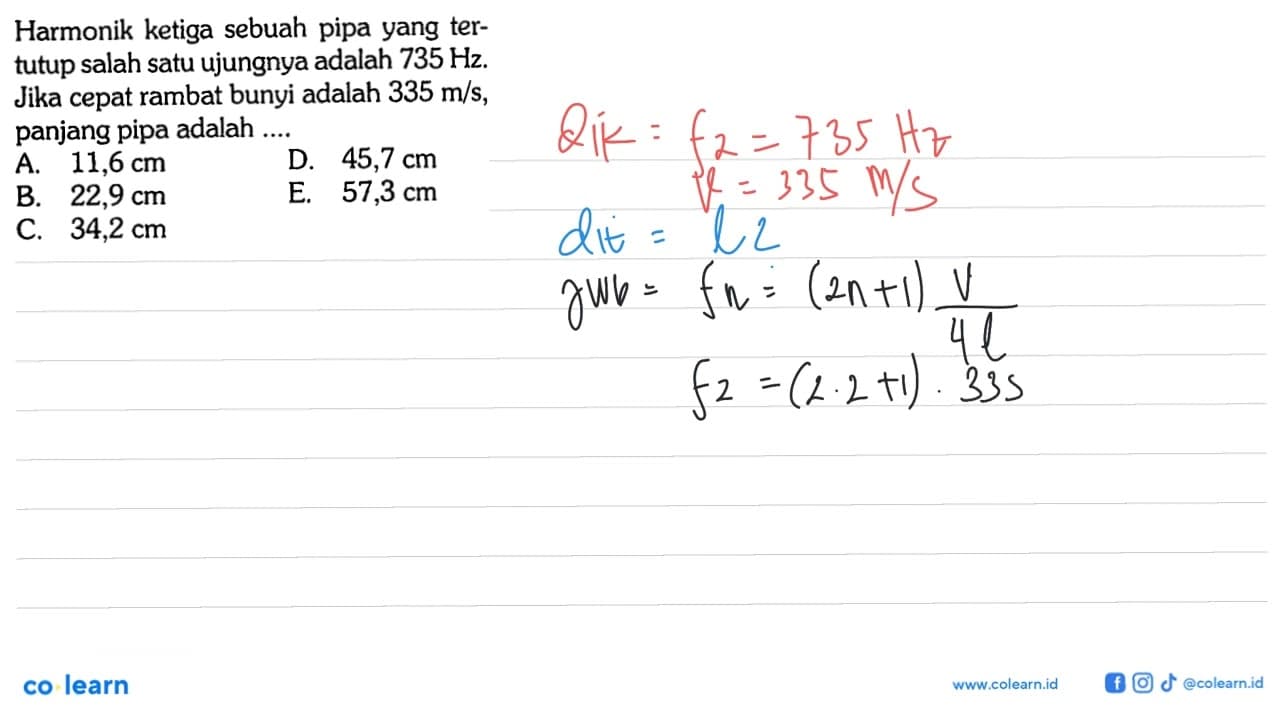 Harmonik ketiga sebuah pipa yang ter-
tutup salah satu ujungnya adalah 735 Hz.
Jika cepat rambat bunyi adalah 335 m/s,
panjang pipa adalah ....
A. 11,6 cm D. 45,7 cm
B. 22,9 cm E. 57,3 cm
C. 34,2 cm
Dik = f2 = 735 Hz
V = 335 m/s
dit = l2
jwb = fn = (2n+1) V
4l
f2 = (2.2+1) . 335
co learn
www.colearn.id
@colearn.id